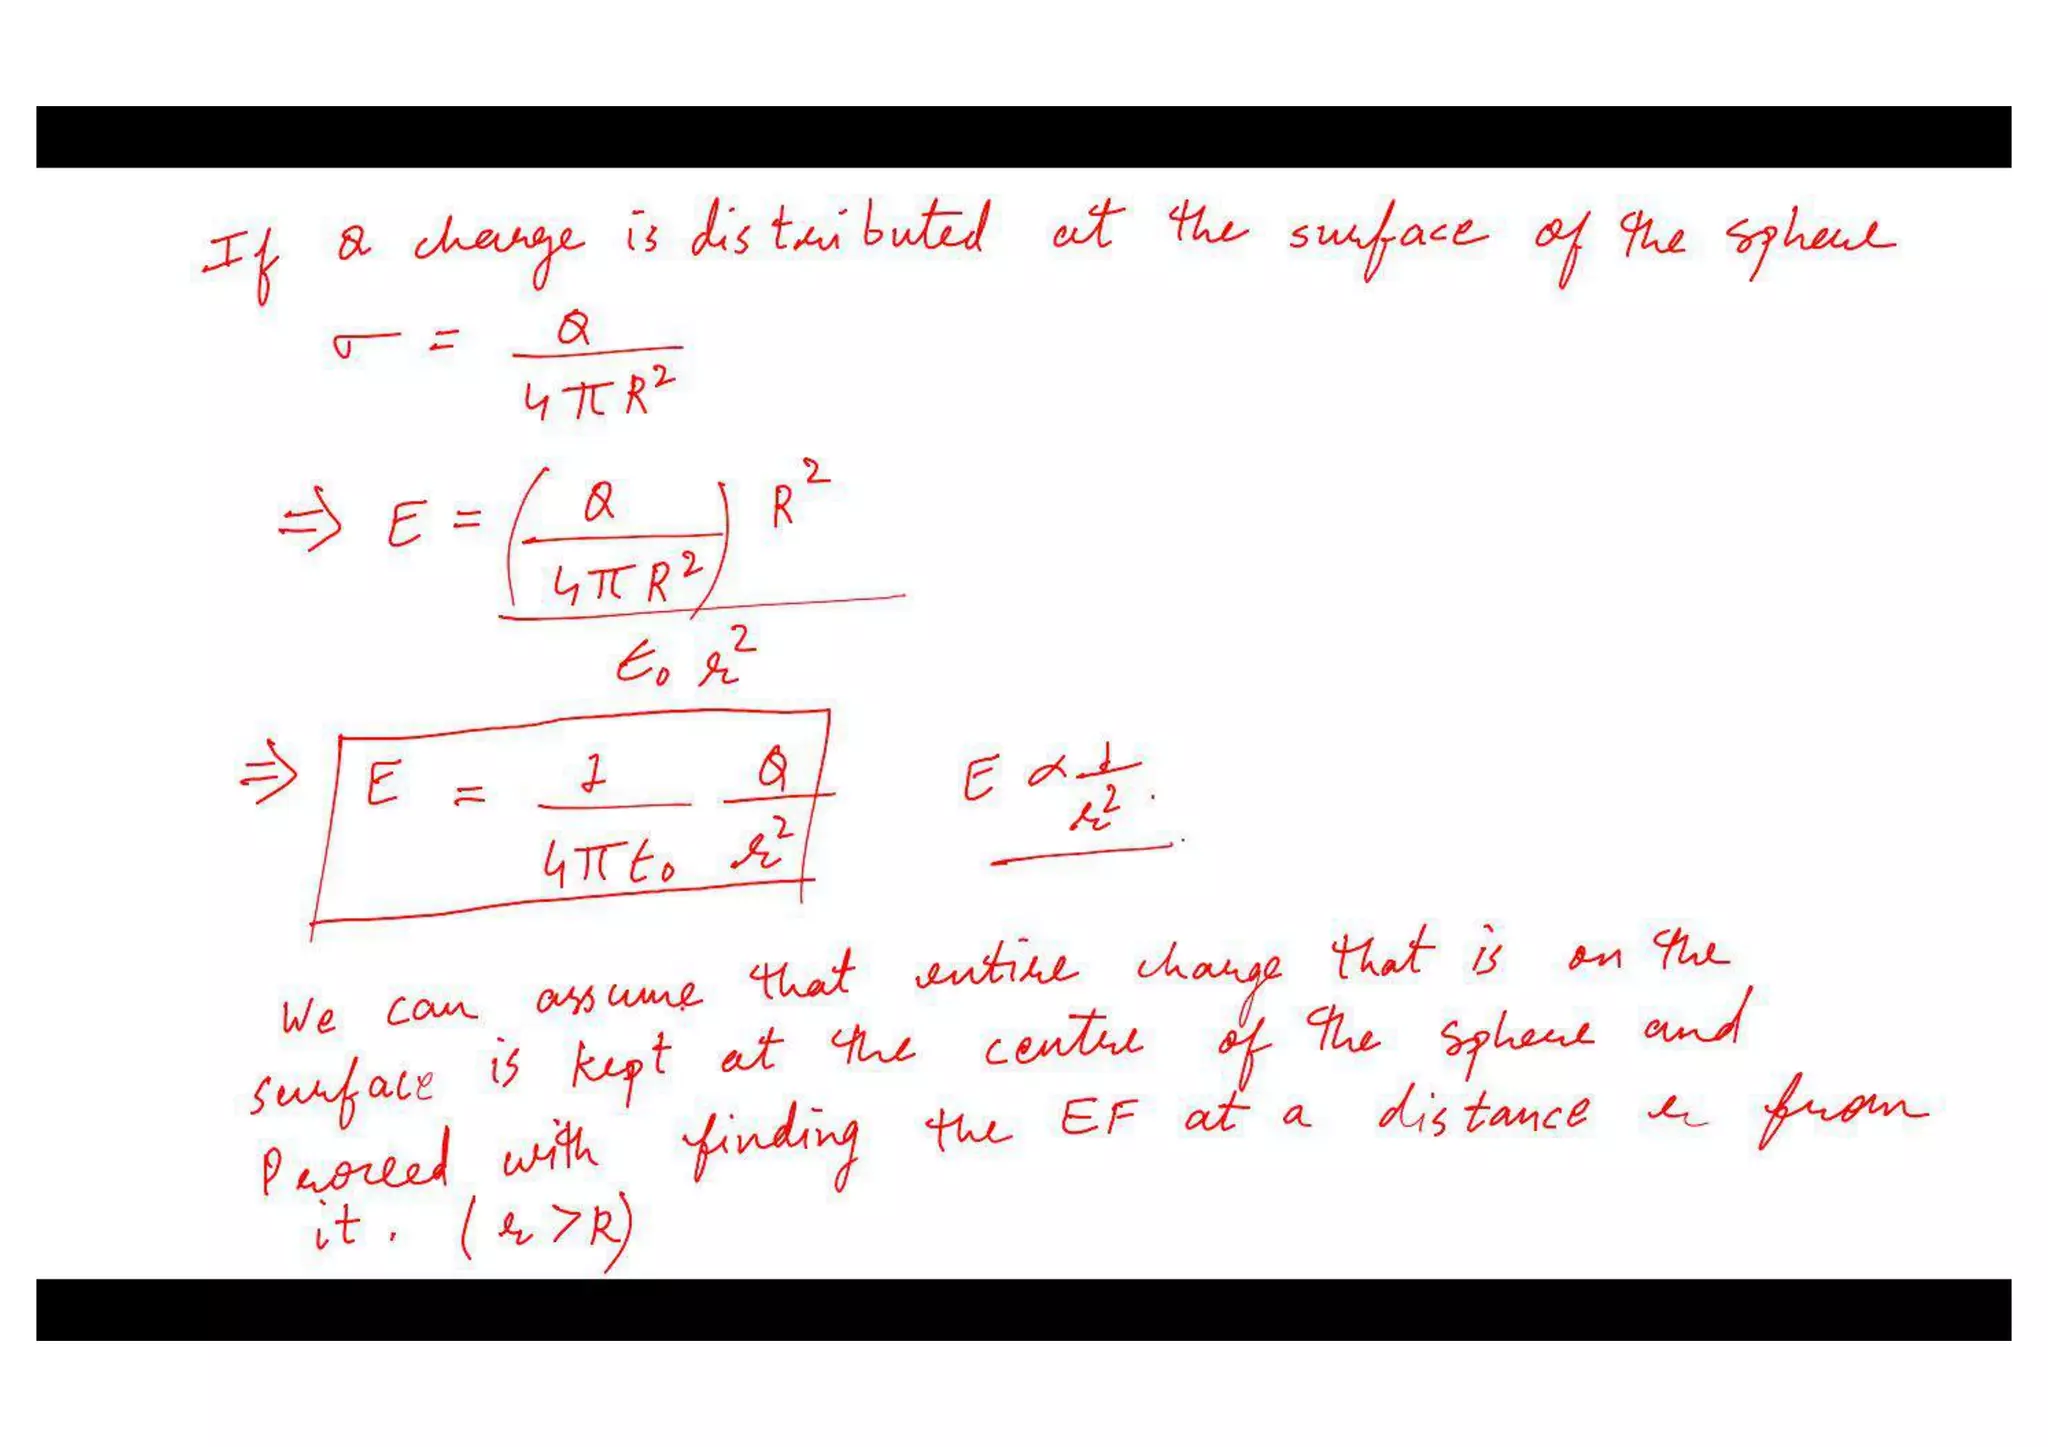 If Q charge is distributed at the surface of the sphere
σ = Q / 4πR²
⇒ E = (Q / 4πR²) R² / ε₀ r²
⇒ E = 1 / 4πε₀ Q / r² E ∝ 1 / r².
We can assume that entire charge that is on the
surface is kept at the centre of the sphere and
Proceed with finding the EF at a distance r from
it. (r > R)